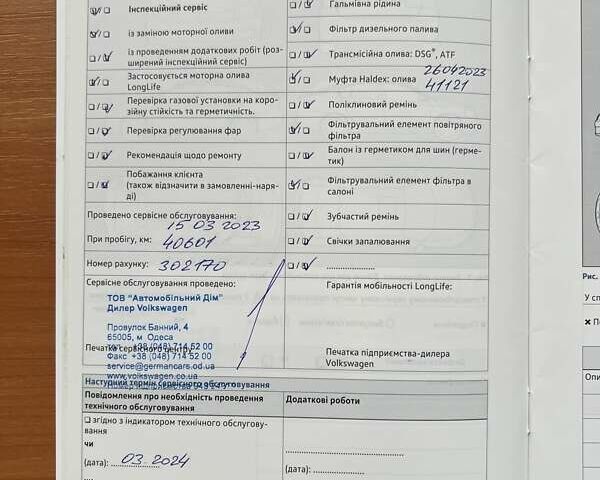 Інспекційний сервіс
із заміною моторної оливи
із проведенням додаткових робіт (роз-
ширений інспекційний сервіс)
Застосовується моторна олива
LongLife
Перевірка газової установки на коро-
зійну стійкість та герметичність.
Перевірка регулювання фар
Рекомендація щодо ремонту
Побажання клієнта
(також відзначити в замовленні-наря-
ді)
Гальмівна рідина
Фільтр дизельного палива
Трансмісійна олива: DSG®, ATF
Муфта Haldex: олива 26042023
41121
Поліклиновий ремінь
Фільтрувальний елемент повітряного
фільтра
Балон із герметиком для шин (герме-
тик)
Фільтрувальний елемент фільтра в
салоні
Зубчастий ремінь
Свічки запалювання
Проведено сервісне обслуговування:
15 03 2023
При пробігу, км: 40601
Номер рахунку: 302170
Сервісне обслуговування проведено:
ТОВ "Автомобільний Дім"
Дилер Volkswagen
Провулок Банний, 4
65005, м Одеса
тел. +38 (048) 714 52 00
Печатка сервісного центру:
Факс +38 (048) 714 52 00
service@germancars.od.ua
www.volkswagen.co.ua
Гарантія мобільності LongLife:
Печатка підприємства-дилера
Volkswagen
Наступний термін сервісного обслуговування
Повідомлення про необхідність проведення
технічного обслуговування
Додаткові роботи
згідно з індикатором технічного обслугову-
вання
чи
(дата): 03.2024
(дата):
Рис.
У сп
Опи